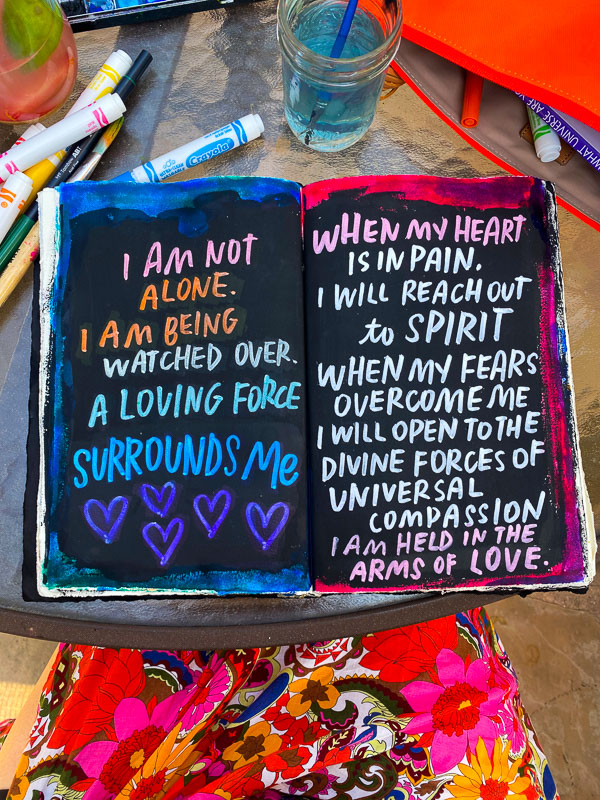 I AM NOT
ALONE.
I AM BEING
WATCHED OVER.
A LOVING FORCE
SURROUNDS Me
WHEN MY HEART
IS IN PAIN.
I WILL REACH OUT
to SPIRIT
WHEN MY FEARS
OVERCOME ME
I WILL OPEN TO THE
DIVINE FORCES OF
UNIVERSAL
COMPASSION
I AM HELD IN THE
ARMS OF LOVE.
Crayola
WHAT UNIVERSE ARE YOU